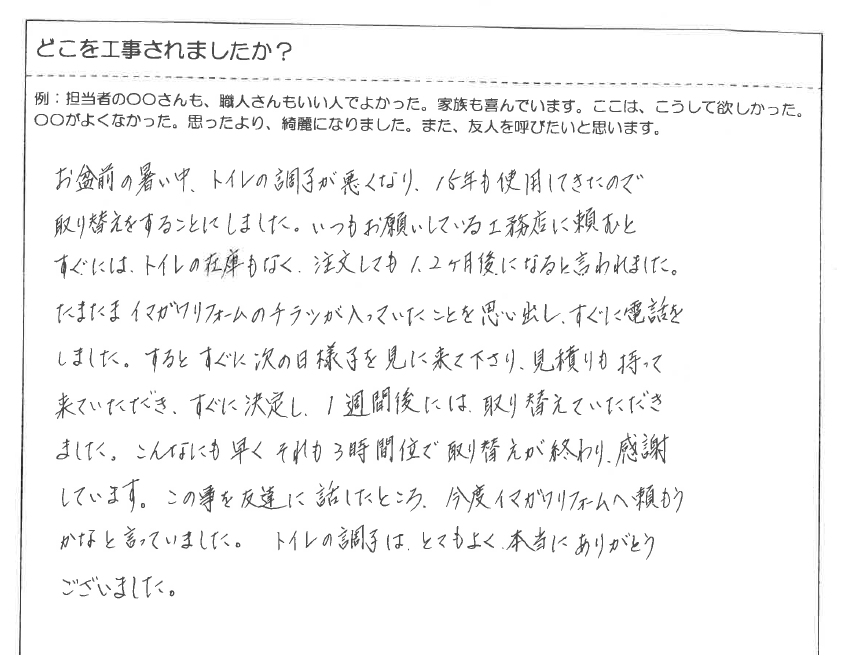 どこを工事されましたか？
例：担当者の〇〇さんも、職人さんもいい人でよかった。家族も喜んでいます。ここは、こうして欲しかった。
〇〇がよくなかった。思ったより、綺麗になりました。また、友人を呼びたいと思います。
お盆前の暑い中、トイレの調子が悪くなり、15年も使用してきたので
取り替えをすることにしました。いつもお願いしている工務店に頼むと
すぐには、トイレの在庫もなく、注文しても1、2ヶ月後になると言われました。
たまたまイマガワリフォームのチラシが入っていたことを思い出し、すぐに電話を
しました。するとすぐに次の日様子を見に来て下さり、見積りも持って
来ていただき、すぐに決定し、1週間後には、取り替えていただき
ました。こんなにも早くそれも3時間位で取り替えが終わり、感謝
しています。この事を友達に話したところ、今度イマガワリフォームへ頼もう
かなと言っていました。トイレの調子は、とてもよく、本当にありがとう
ございました。